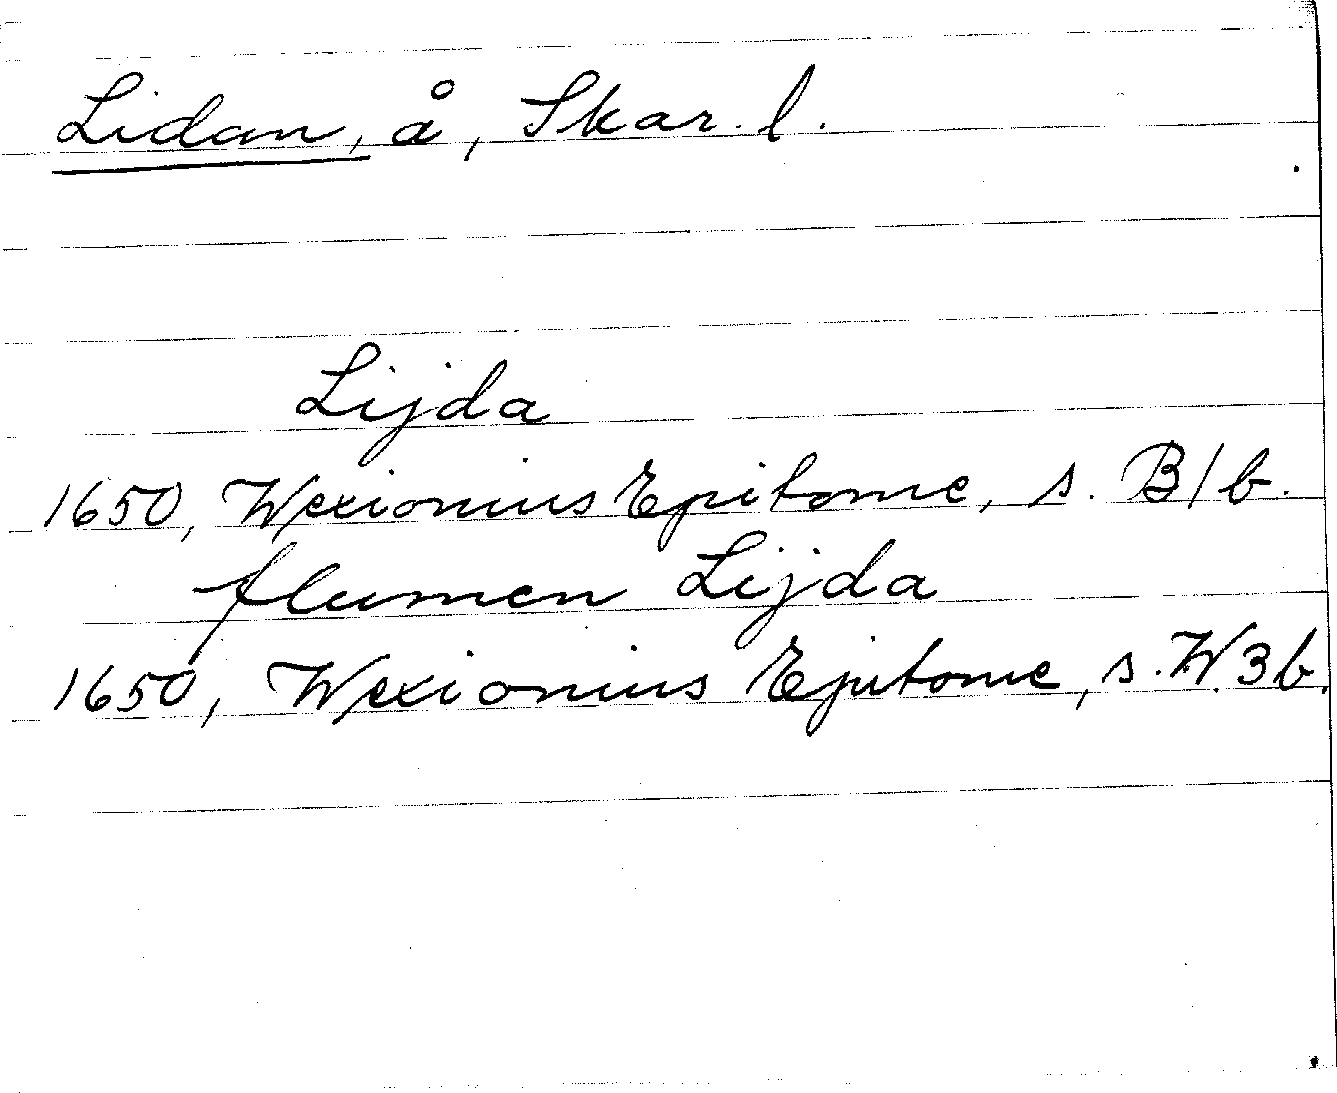 Lidan, å, Skar. l.
Lijda
1650, Wexionius Epitome, s. B1b.
flumen Lijda
1650, Wexionius Epitome, s. W3b.